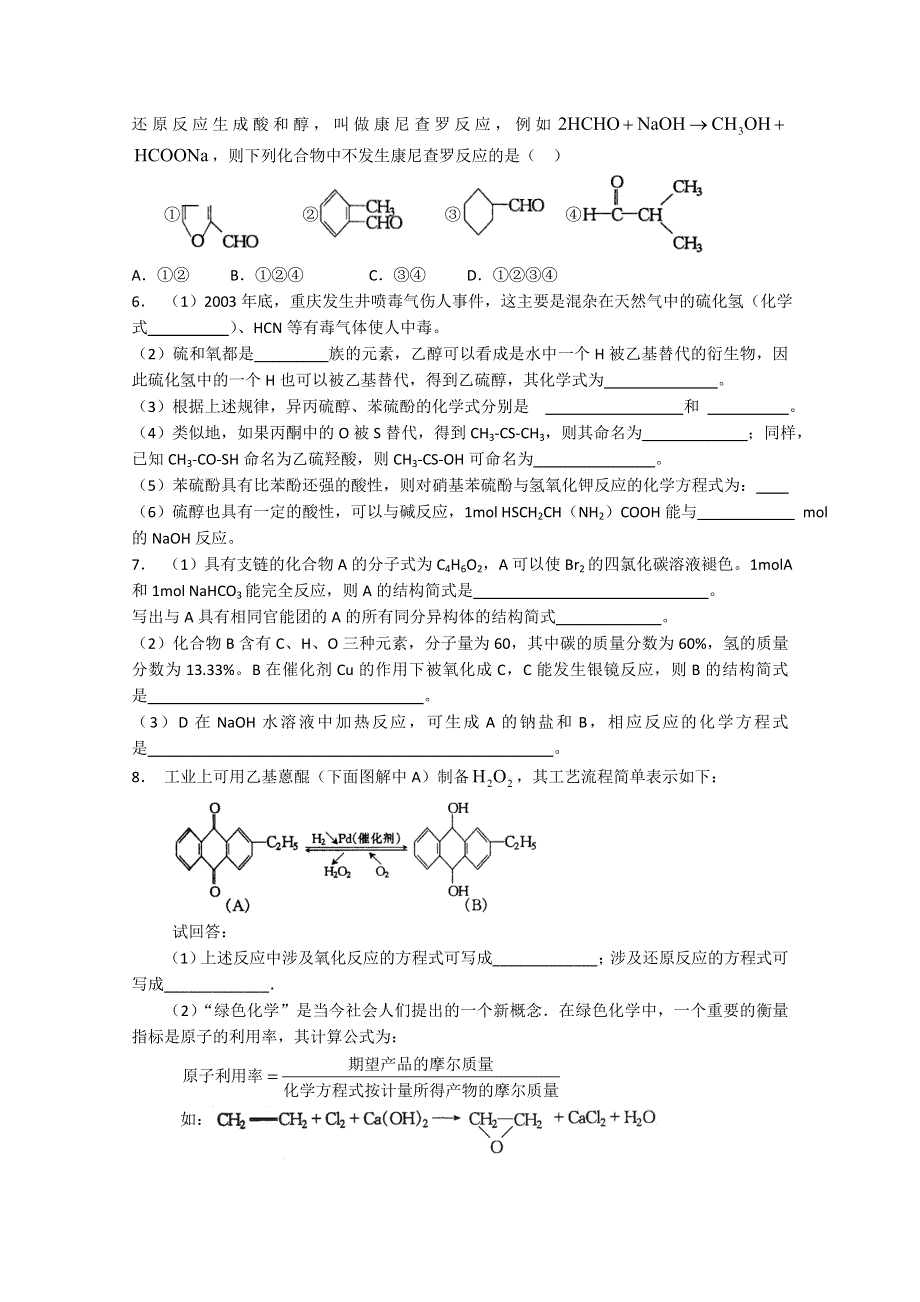 还原反应生成酸和醇，叫做康尼查罗反应，例如 2HCHO + NaOH → CH₃OH +
HCOONa，则下列化合物中不发生康尼查罗反应的是（ ）
① O CHO ② CH₃ CHO ③ CHO ④ H—C—CH O CH₃ CH₃
A．①② B．①②④ C．③④ D．①②③④
6． （1）2003 年底，重庆发生井喷毒气伤人事件，这主要是混杂在天然气中的硫化氢（化学
式__________）、HCN 等有毒气体使人中毒。
（2）硫和氧都是_________族的元素，乙醇可以看成是水中一个 H 被乙基替代的衍生物，因
此硫化氢中的一个 H 也可以被乙基替代，得到乙硫醇，其化学式为______________。
（3）根据上述规律，异丙硫醇、苯硫酚的化学式分别是 _________________和 __________。
（4）类似地，如果丙酮中的 O 被 S 替代，得到 CH₃-CS-CH₃，则其命名为_____________；同样，
已知 CH₃-CO-SH 命名为乙硫羟酸，则 CH₃-CS-OH 可命名为_______________。
（5）苯硫酚具有比苯酚还强的酸性，则对硝基苯硫酚与氢氧化钾反应的化学方程式为：____
（6）硫醇也具有一定的酸性，可以与碱反应，1mol HSCH₂CH（NH₂）COOH 能与____________ mol
的 NaOH 反应。
7． （1）具有支链的化合物 A 的分子式为 C₄H₆O₂，A 可以使 Br₂ 的四氯化碳溶液褪色。1molA
和 1mol NaHCO₃ 能完全反应，则 A 的结构简式是_____________________________。
写出与 A 具有相同官能团的 A 的所有同分异构体的结构简式_____________。
（2）化合物 B 含有 C、H、O 三种元素，分子量为 60，其中碳的质量分数为 60%，氢的质量
分数为 13.33%。B 在催化剂 Cu 的作用下被氧化成 C，C 能发生银镜反应，则 B 的结构简式
是__________________________________。
（3）D 在 NaOH 水溶液中加热反应，可生成 A 的钠盐和 B，相应反应的化学方程式
是__________________________________________________。
8． 工业上可用乙基蒽醌（下面图解中 A）制备 H₂O₂，其工艺流程简单表示如下：
O O C₂H₅ (A) H₂ Pd(催化剂) H₂O₂ O₂ OH OH C₂H₅ (B)
试回答：
（1）上述反应中涉及氧化反应的方程式可写成_____________；涉及还原反应的方程式可
写成_____________．
（2）“绿色化学”是当今社会人们提出的一个新概念．在绿色化学中，一个重要的衡量
指标是原子的利用率，其计算公式为：
期望产品的摩尔质量
原子利用率 =
化学方程式按计量所得产物的摩尔质量
如：CH₂═CH₂ + Cl₂ + Ca(OH)₂ → CH₂—CH₂ + CaCl₂ + H₂O
O